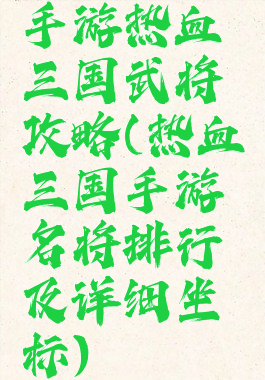 手游热血
三国武将
攻略(热血
三国手游
名将排行
及详细坐
标)